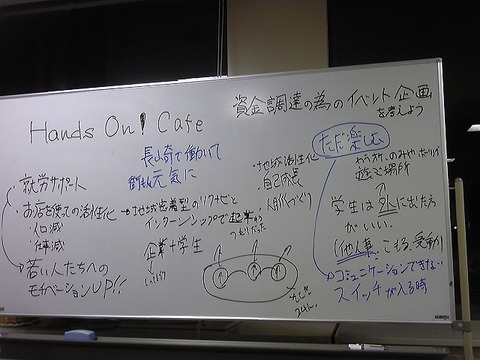 Hands On! Cafe
資金調達の為のイベント企画
を考えよう
長崎で働いて
元気に
就労サポート
・お店を使っての活性化
・人口減
・仕事減
若い人たちへの
モチベーションUP!!
→地域密着型のリクナビと
インターンシップで起業
企業+学生
・地域活性化
・自己成長
・人財づくり
ただ楽しむ
遊ぶ場所
学生は外に出たら
がいい。
(他人事、こまる、受動)
コミュニケーションできない
スイッチが入る時